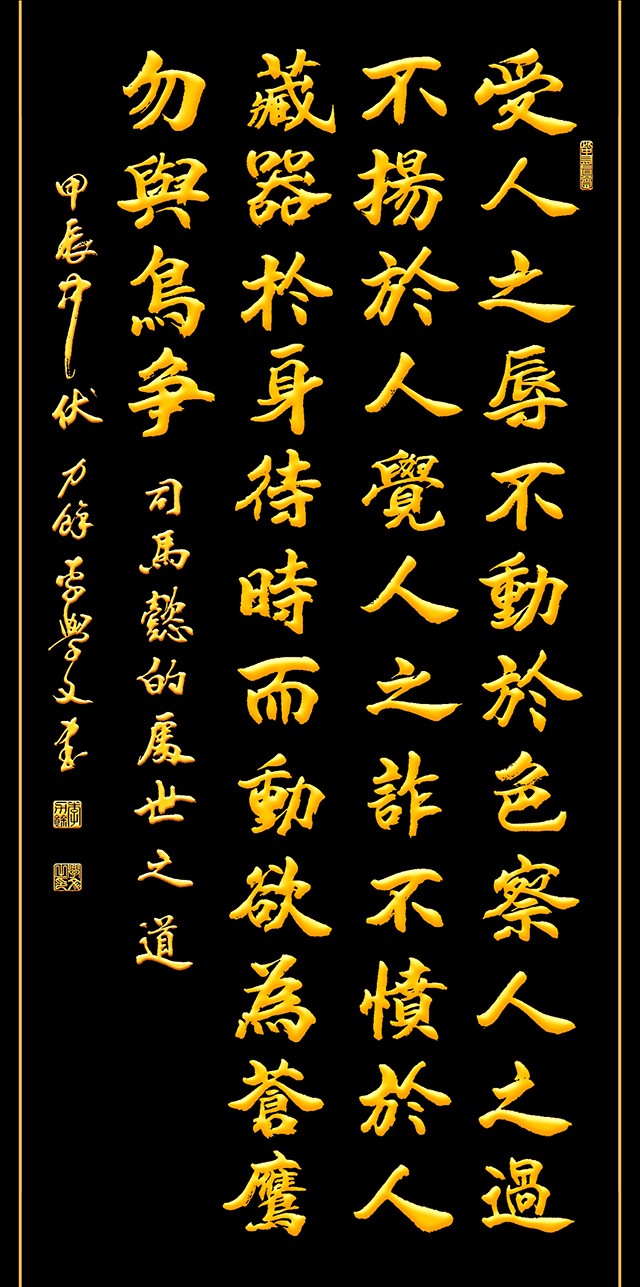 受人之辱不動於色察人之過
不揚於人覺人之詐不憤於人
藏器於身待時而動欲為蒼鷹
勿與鳥争
司馬懿的處世之道
甲辰中伏力餘李學文書